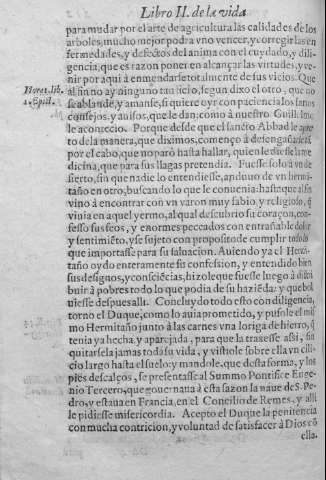 Libro II. de la vida
para mudar por el arte de agricultura las calidades de los
arboles, mucho mejor podra vno vencer, y corregir las en
fermedades, y defectos del anima con el cuydado, y dili
gencia, que es razon poner en alcançar las virtudes, y ve-
nir por aqui à enmendarse totalmente de sus vicios. Que
al fin no ay ninguno tan segun dixo el otro, que no
se ablande, y amanse, si quiere oyr con paciencia los sanos
consejos, y auisos, que le dan: como à nuestro Guillelmo
le acontecio. Porque desde que el sancto Abbad le
to dela manera, que diximos, començò à desengañarse
por el cabo, que no parò hasta hallar, quien le diesse la me
dicina, que para sus llagas pretendia. Fuesse solo à vn de
sierto, sin que nadie lo entendiesse, anduuo de vn hermi-
taño en otro, buscando lo que le conuenia: hasta que al fin
vino à encontrar con vn varon muy sabio, y religioso, q̃
viuia en aquel yermo, al qual descubrio su coraçon, con-
fesso sus feos, y enormes peccados con entrañable dolor
y sentimiẽto, y se sujeto con proposito de cumplir todo lo
que importasse para su saluacion. Auiendo ya el Hermi-
taño oydo enteramente su confession, y entendido bien
sus designos, y consciẽcias, hizole que fuesse luego à distri
buir à pobres todo lo que podia de su haziẽda: y que bol
uiesse despues alli. Concluydo todo esto con diligencia,
torno el Duque, como lo auia prometido, y pusole el mis
mo Hermitaño junto à las carnes vna loriga de hierro, q̃
tenia ya hecha, y aparejada, para que la traxesse assi, sin
quitarsela jamas toda su vida, y vistiole sobre ella vn cili-
cio largo hasta el suelo: y mandole, que desta forma, y los
pies descalços, se presentasse al Summo Pontifice Euge-
nio Tercero, que gouernaua à esta sazon la naue de S. Pe
dro, y estaua en Francia, en el Concilio de Remes, y alli
le pidiesse misericordia. Acepto el Duque la penitencia
con mucha contricion, y voluntad de satisfacer à Dios cõ
ella.
Horat. lib.
1. Epist.